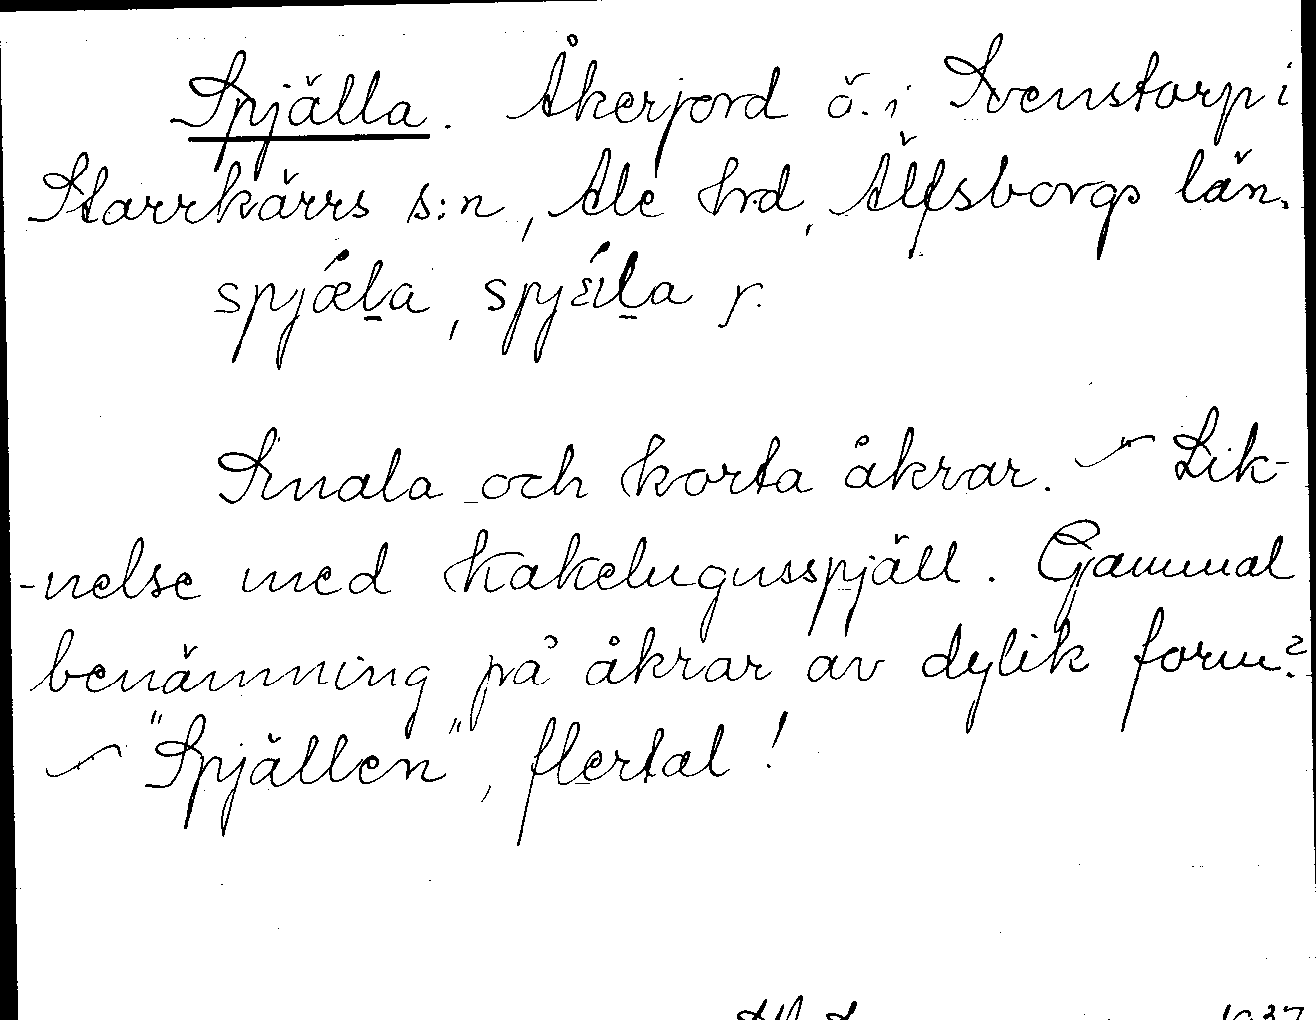 Spjälla. Åkerjord ö. i Svenstorp i
Starrkärrs s:n, Ale hrd, Älfsborgs län.
spjǽla, spjɛ́la f.
Smala och korta åkrar. ~ Lik-
-nelse med kakelugnsspjäll. Gammal
benämning på åkrar av dylik form?
~ "Spjällen", flertal!
1937